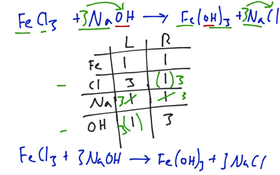 FeCl3 + 3NaOH → Fe(OH)3 + 3NaCl
L R
Fe 1 1
Cl 3 (1)3
Na 3 1 1 3
OH 3(1) 3
FeCl3 + 3NaOH → Fe(OH)3 + 3NaCl